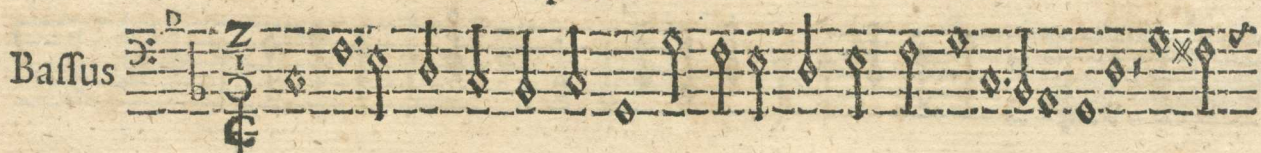 Baſſus